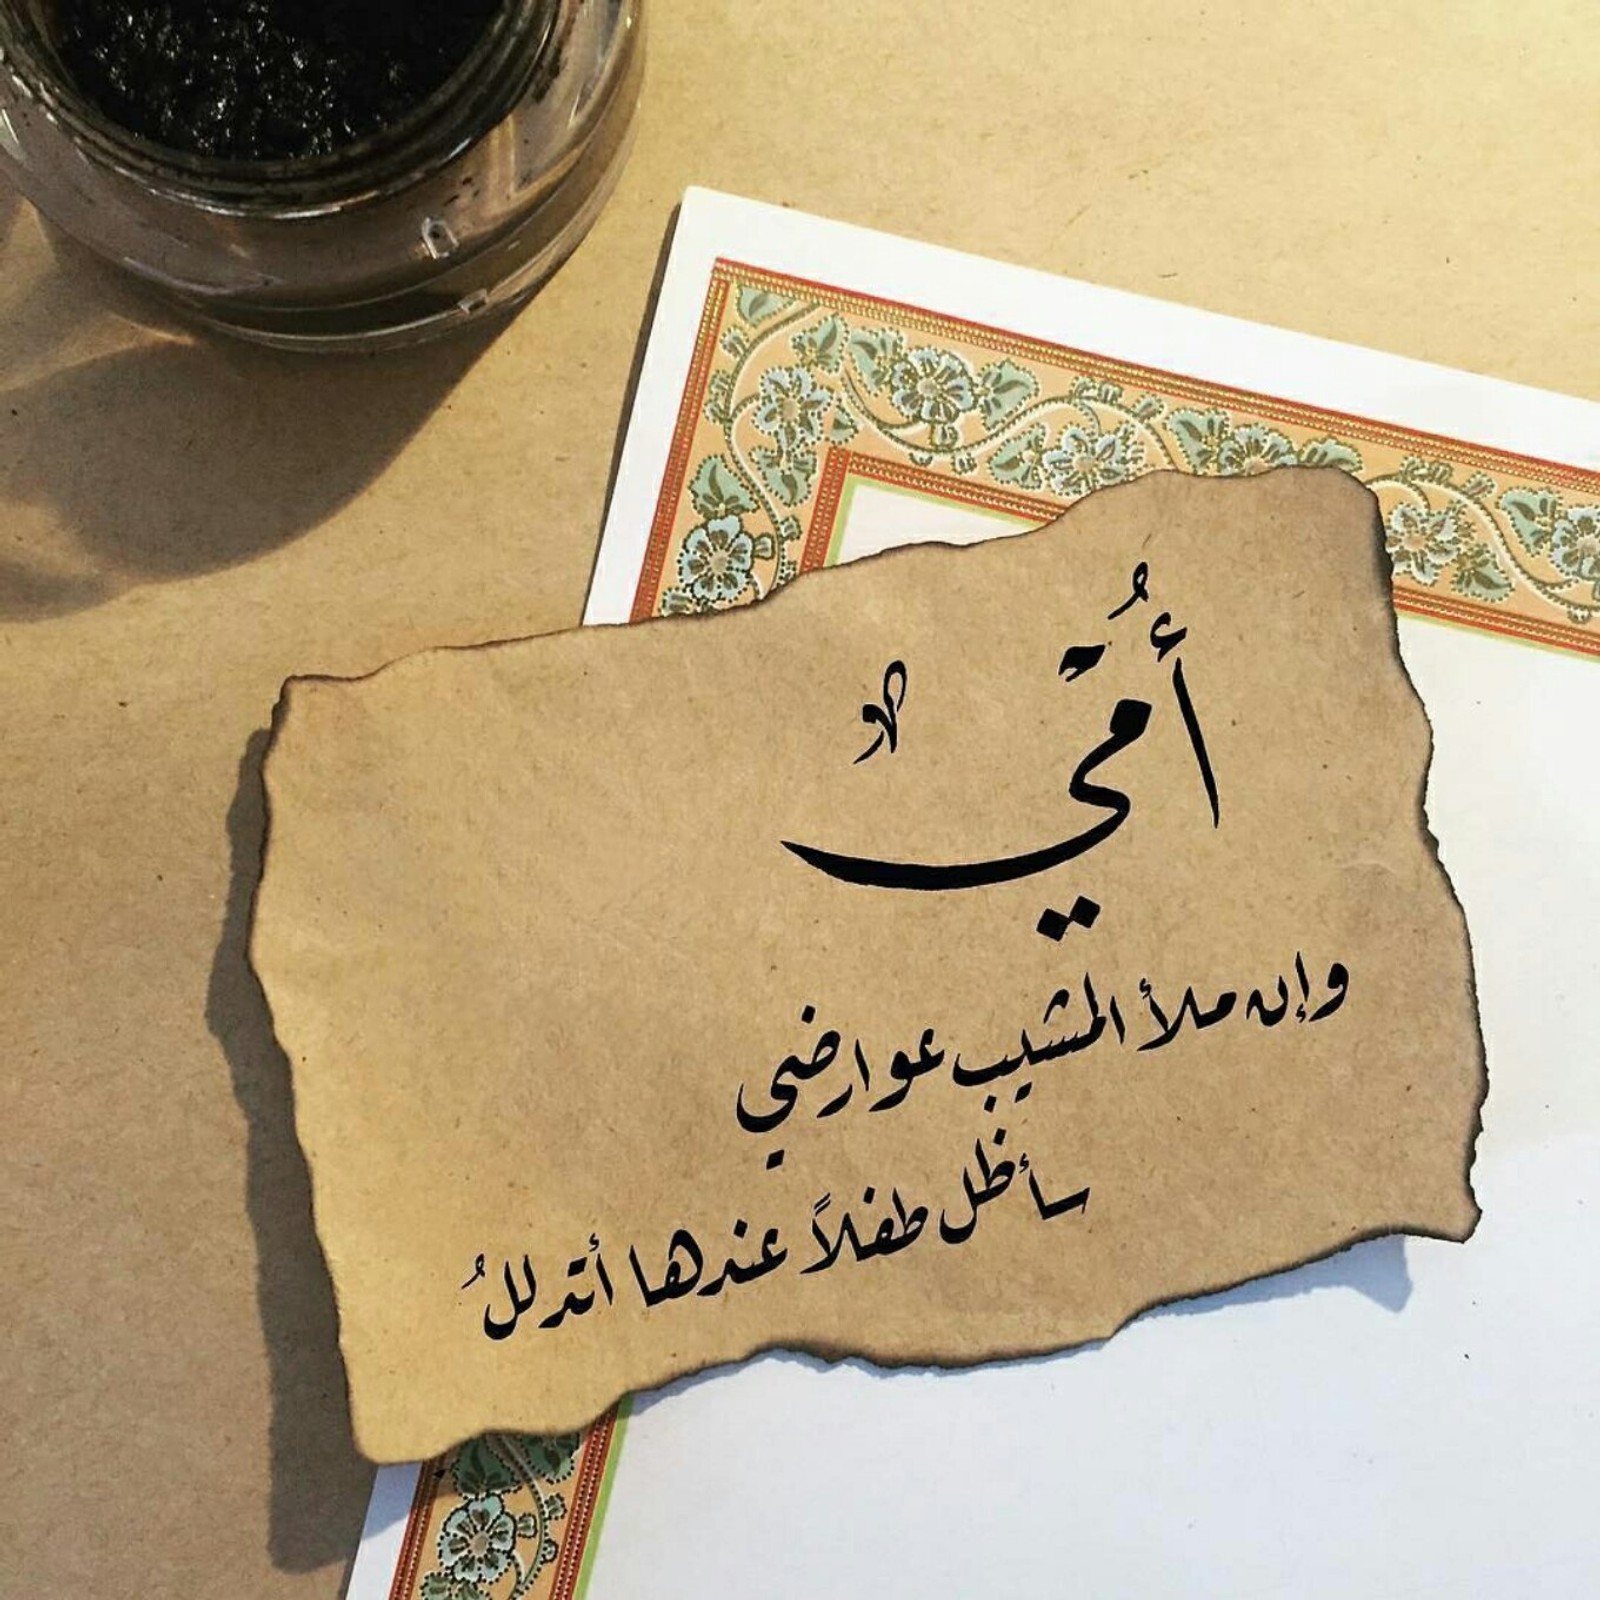 أُمّي
وإن ملأ المشيب عوارضي
سأظل طفلاً عندها أتدللُ